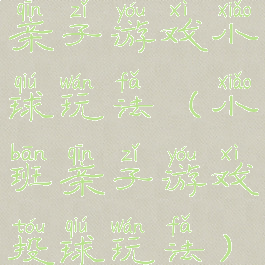 qīn zǐ yóu xì xiǎo
亲子游戏小
qiú wán fǎ xiǎo
球玩法（小
bān qīn zǐ yóu xì
班亲子游戏
tóu qiú wán fǎ
投球玩法）